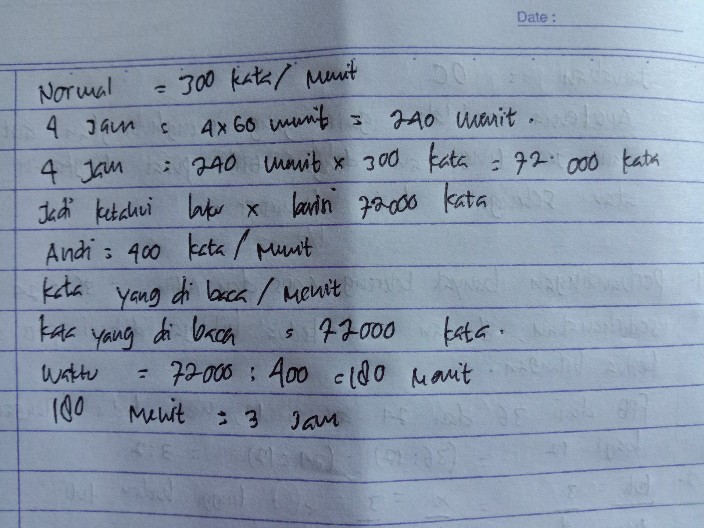 Date :
Normal = 300 kata / Menit
4 Jam = 4 x 60 menit = 240 menit.
4 Jam = 240 menit x 300 kata = 72.000 kata
Jadi ketahui buku x berisi 72000 kata
Andi = 400 kata / Menit
kata yang di baca / Menit
kata yang di baca = 72000 kata.
Waktu = 72000 : 400 = 180 Menit
180 Menit = 3 Jam